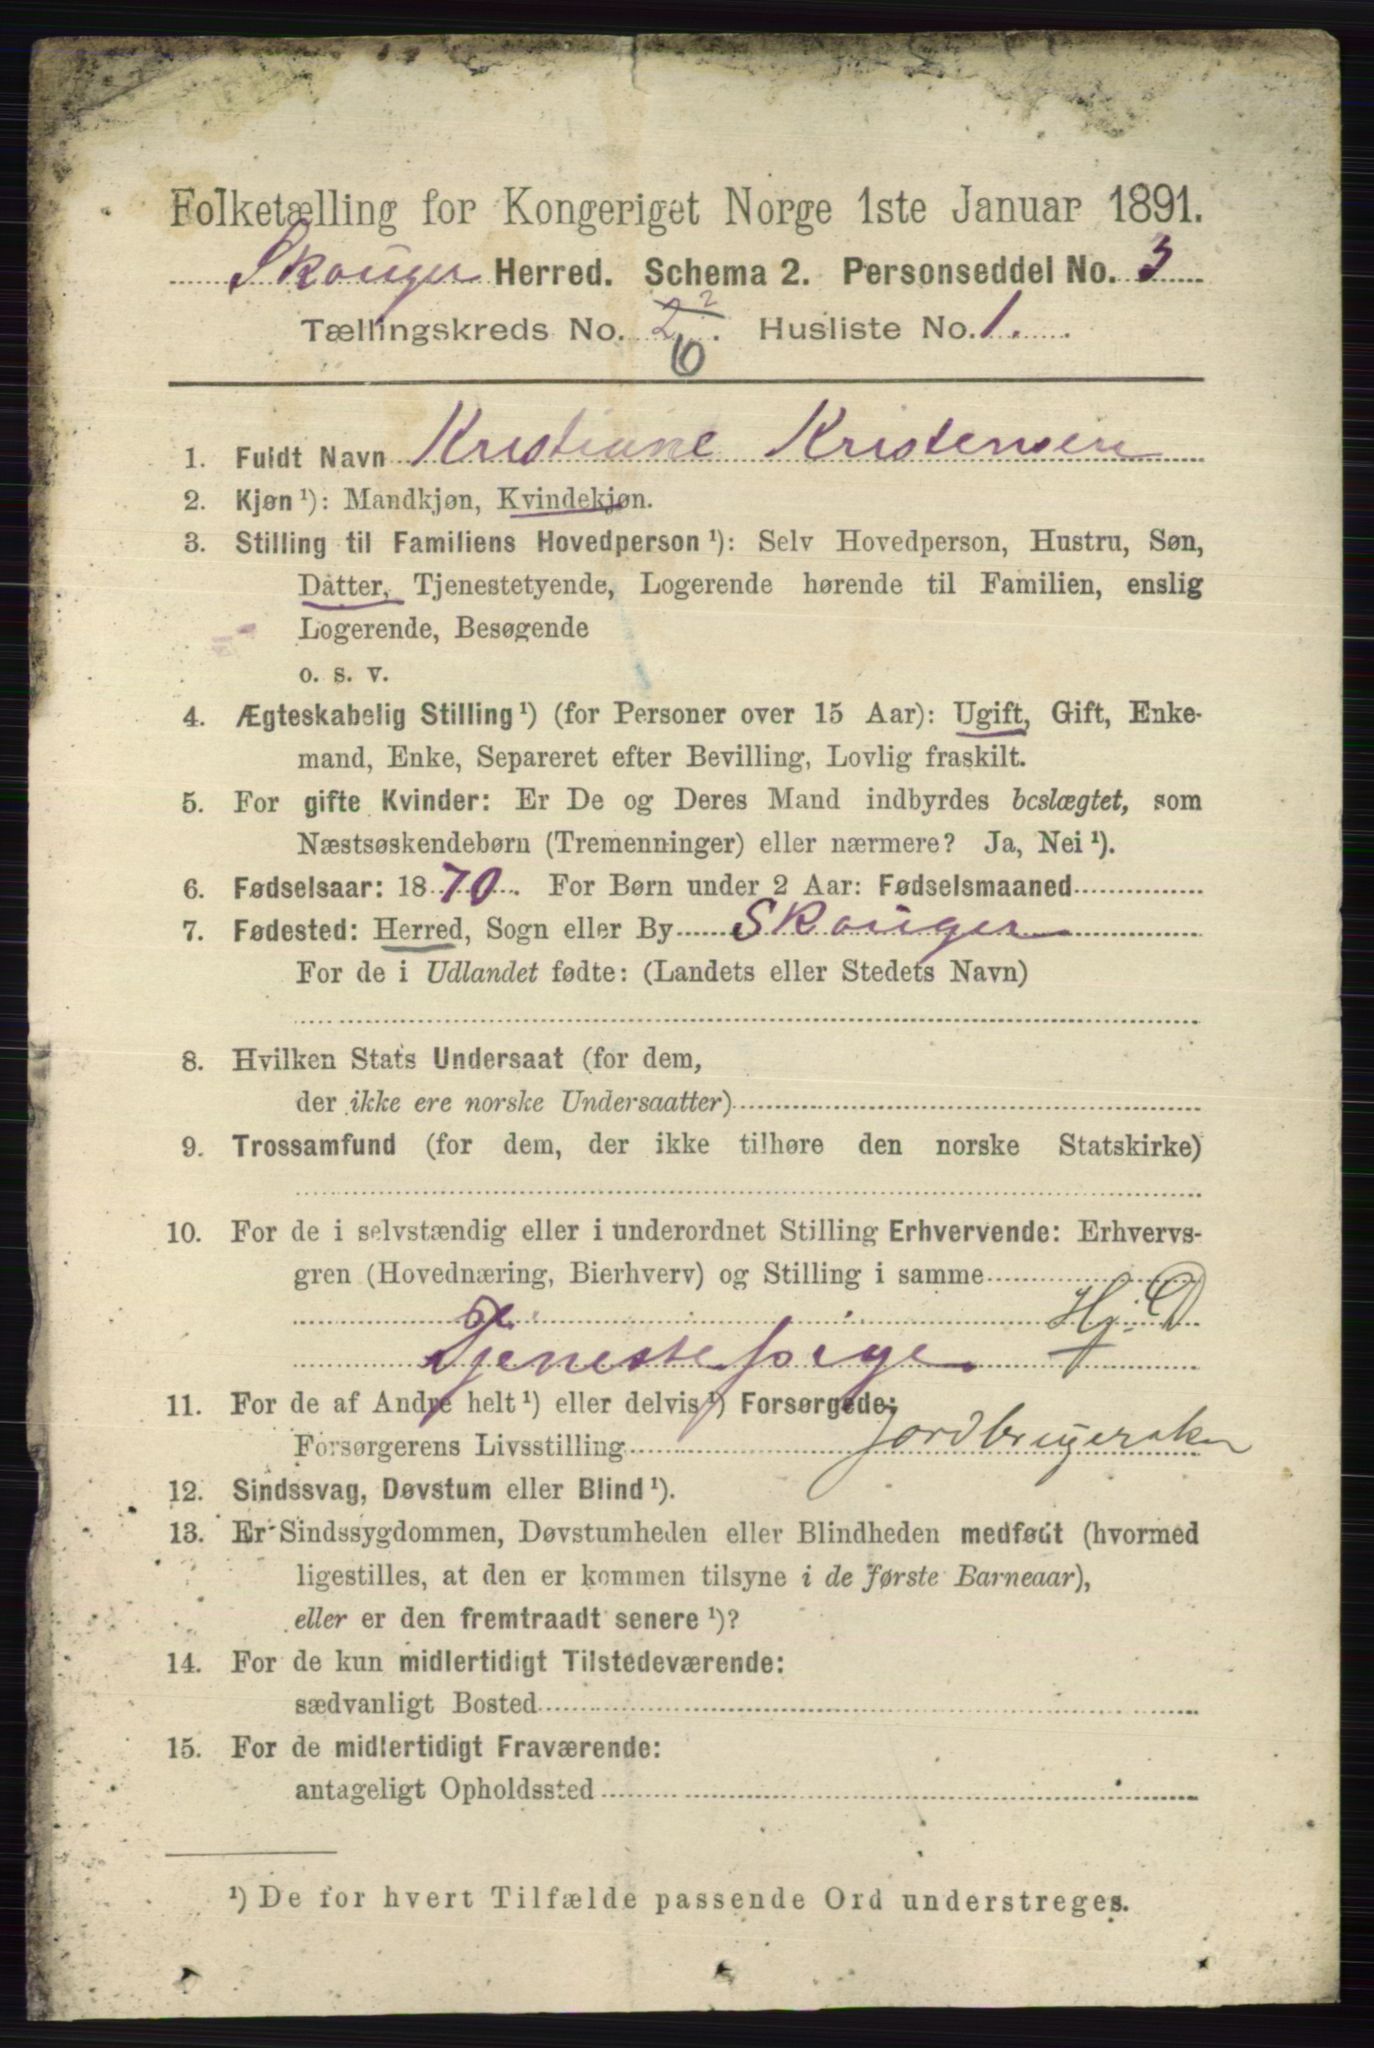 Folketælling for Kongeriget Norge 1ste Januar 1891.
Skouger Herred. Schema 2. Personseddel No. 3
Tællingskreds No. 2 2 6. Husliste No. 1.
1. Fuldt Navn Kristiane Kristensen
2. Kjøn ¹): Mandkjøn, Kvindekjøn.
3. Stilling til Familiens Hovedperson ¹): Selv Hovedperson, Hustru, Søn,
Datter, Tjenestetyende, Logerende hørende til Familien, enslig
Logerende, Besøgende
o. s. v.
4. Ægteskabelig Stilling ¹) (for Personer over 15 Aar): Ugift, Gift, Enke-
mand, Enke, Separeret efter Bevilling, Lovlig fraskilt.
5. For gifte Kvinder: Er De og Deres Mand indbyrdes beslægtet, som
Næstsøskendebørn (Tremenninger) eller nærmere? Ja, Nei ¹).
6. Fødselsaar: 1870. For Børn under 2 Aar: Fødselsmaaned
7. Fødested: Herred, Sogn eller By Skouger
For de i Udlandet fødte: (Landets eller Stedets Navn)
8. Hvilken Stats Undersaat (for dem,
der ikke ere norske Undersaatter)
9. Trossamfund (for dem, der ikke tilhøre den norske Statskirke)
10. For de i selvstændig eller i underordnet Stilling Erhvervende: Erhvervs-
gren (Hovednæring, Bierhverv) og Stilling i samme
Hj. D
Tjenestepige
11. For de af Andre helt ¹) eller delvis ¹) Forsørgede:
Forsørgerens Livsstilling Jordbrugerske
12. Sindssvag, Døvstum eller Blind ¹).
13. Er Sindssygdommen, Døvstumheden eller Blindheden medfødt (hvormed
ligestilles, at den er kommen tilsyne i de første Barneaar),
eller er den fremtraadt senere ¹)?
14. For de kun midlertidigt Tilstedeværende:
sædvanligt Bosted
15. For de midlertidigt Fraværende:
antageligt Opholdssted
¹) De for hvert Tilfælde passende Ord understreges.